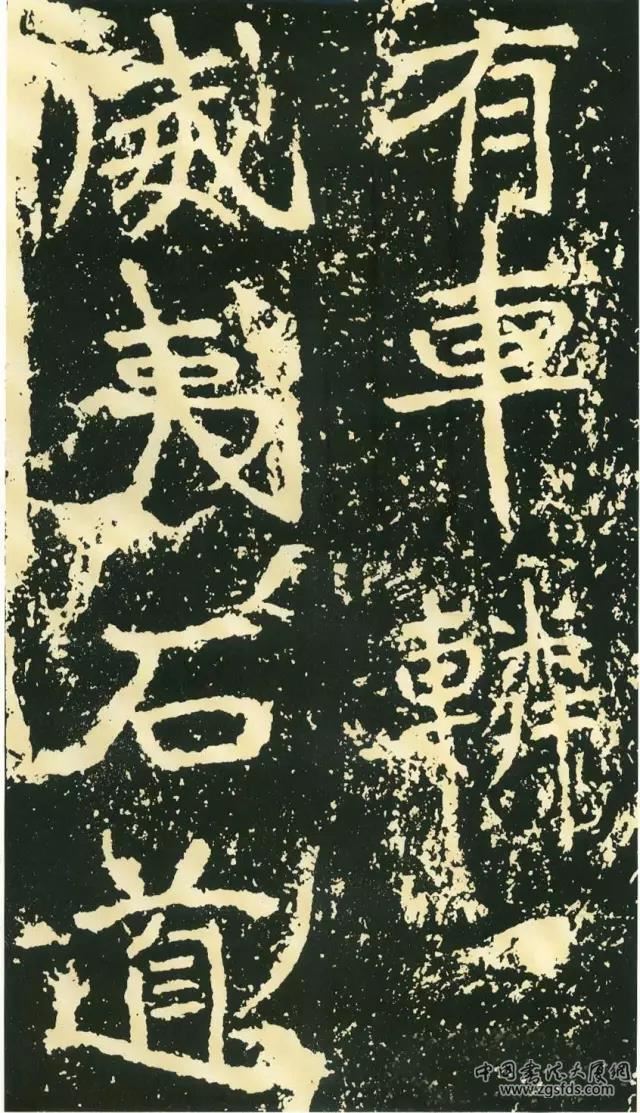 有車轔々
威夷石道
中国书法大厦網
www.zgsfds.com